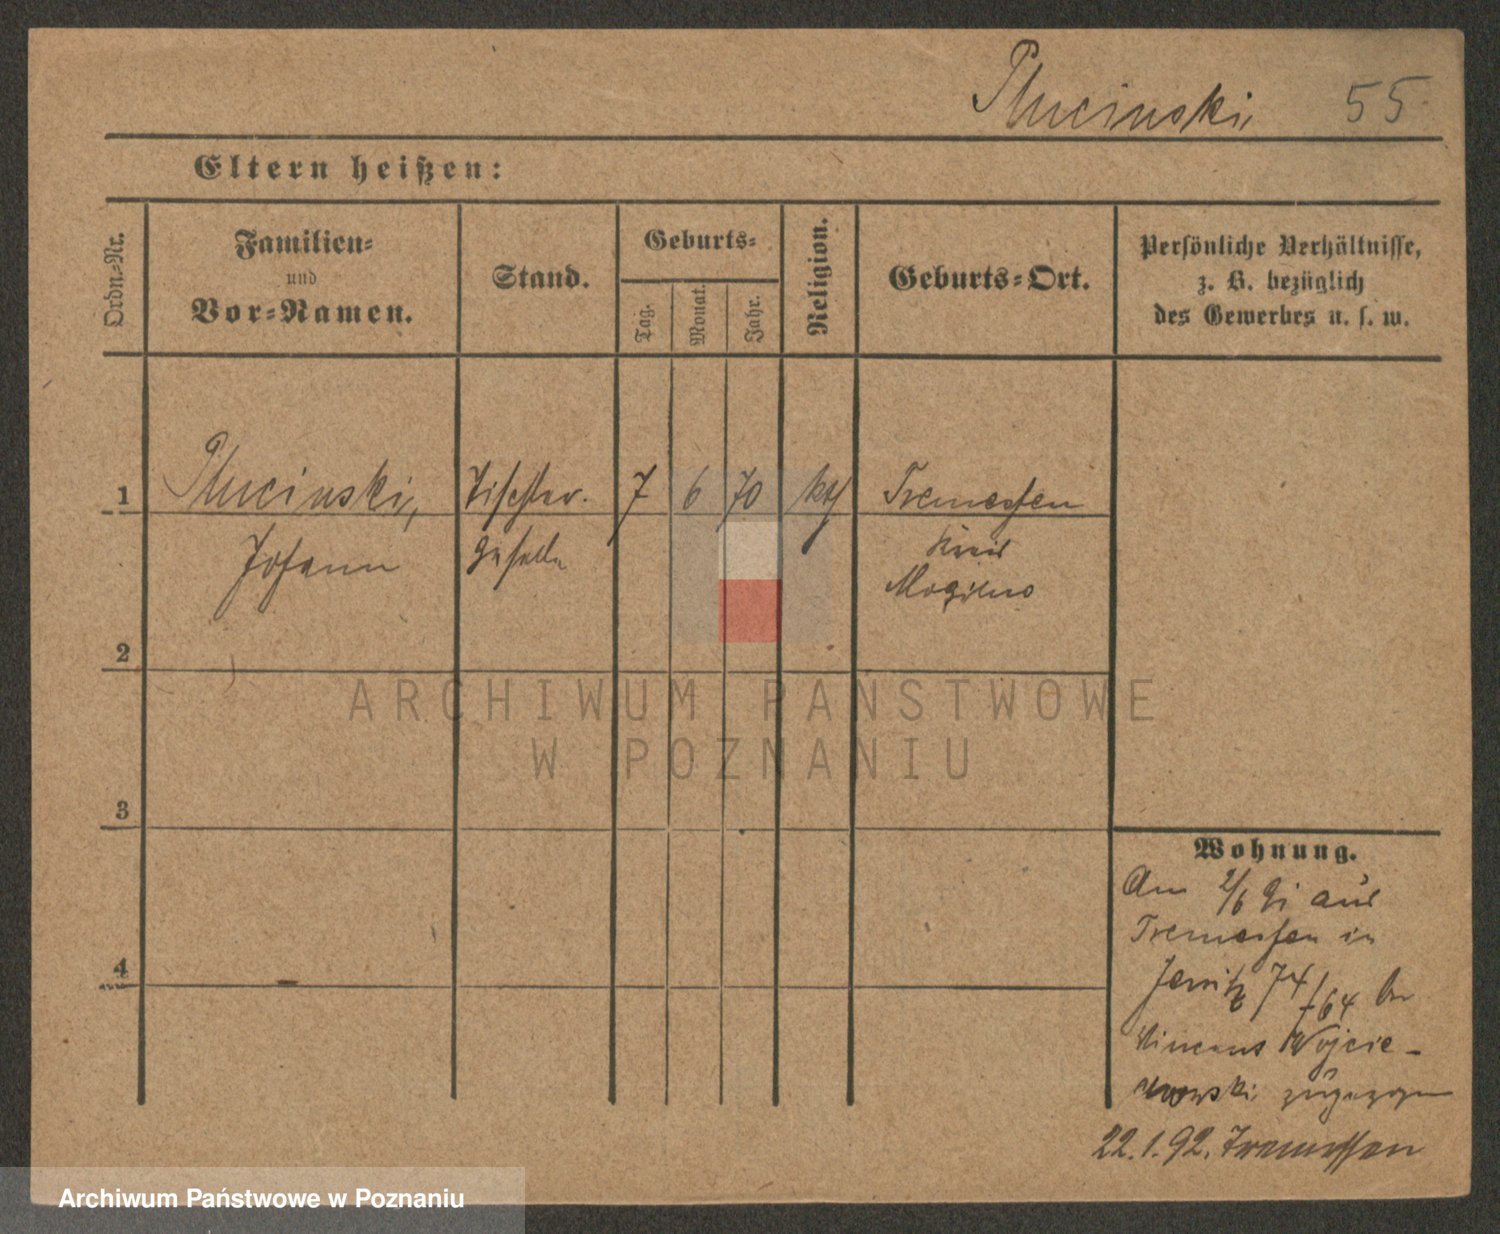 Plucinski, 55
Eltern heißen:
Ordn.=Nr.
Familien=
und
Vor=Namen.
Stand.
Geburts=
Tag.
Monat.
Jahr.
Religion.
Geburts=Ort.
Persönliche Verhältnisse,
z. B. bezüglich
des Gewerbes u. s. w.
1 Plucinski, Tischler. 7 6 70 kth Tremessen
Johann Geselle Kreis
Mogilno
2
3
4
ARCHIWUM PAŃSTWOWE
W POZNANIU
Wohnung.
Am 2/6 91 aus
Tremessen in
Jersitz 74/764 bei
Vincent Wojcie-
chowski zugezogen
22.1.92. Tremessen
Archiwum Państwowe w Poznaniu